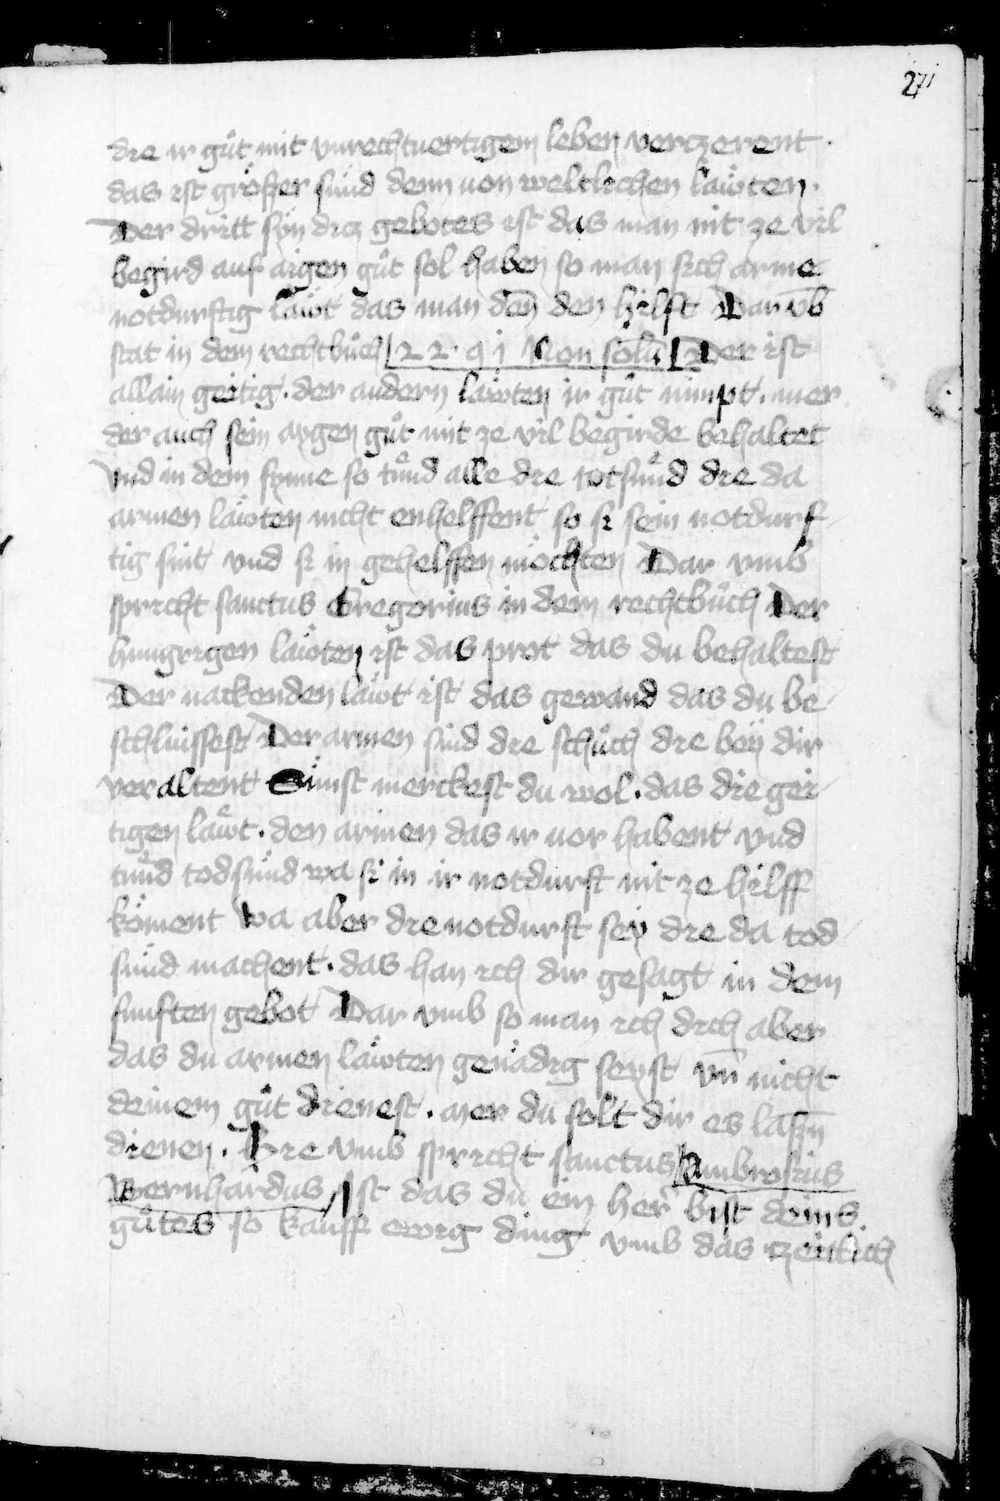 271
die ir gůt mit vnrechtuertigem leben verczerent ·
das ist grösser sünd denn von weltlichen läwten ·
Der dritt syn dicz gebotes ist das man nit ze vil
begird auf aigen gůt sol haben so man sich arme
notdurftig läwt das man deñ den hilft Dar vmb
stat in dem rechtbůch 22 · q i Non solū Der ist
allain geitig · der andern läwten ir gůt nimpt · mer
der auch sein aygen gůt mit ze vil begirde behaltet
Vnd in dem synne so tůnd alle die totsünd die da
armen läwten nicht enhelffent so si sein notdurf
tig sint vnd si in gehelffen möchten Dar vmb
spricht sanctus Gregorius in dem rechtbůch Der
hungrigen läwten ist das prot das du behaltest
Der nackenden läwt ist das gewand das du be
schliussest Der armen sind die schůch die bey dir
veraltent Sünst merckest du wol · das die gei
tigen läwt · den armen das ir vor habent vnd
tůnd todsünd wa si in ir notdurft nit ze hilff
köment wa aber die notdurft sey die da tod
sünd machent · das han ich dir gesagt in dem
funften gebot Dar vmb so man ich dich aber
das du armen läwten genädig seyst vn̄ nicht
deinem gůt dienest · mer du solt dir es lassn̄
dienen · Hie vmb spricht sanctus Ambrosius
Bernhardus Ist das du ein her bist deins
gůtes so kauff ewig ding vmb das zeitlich